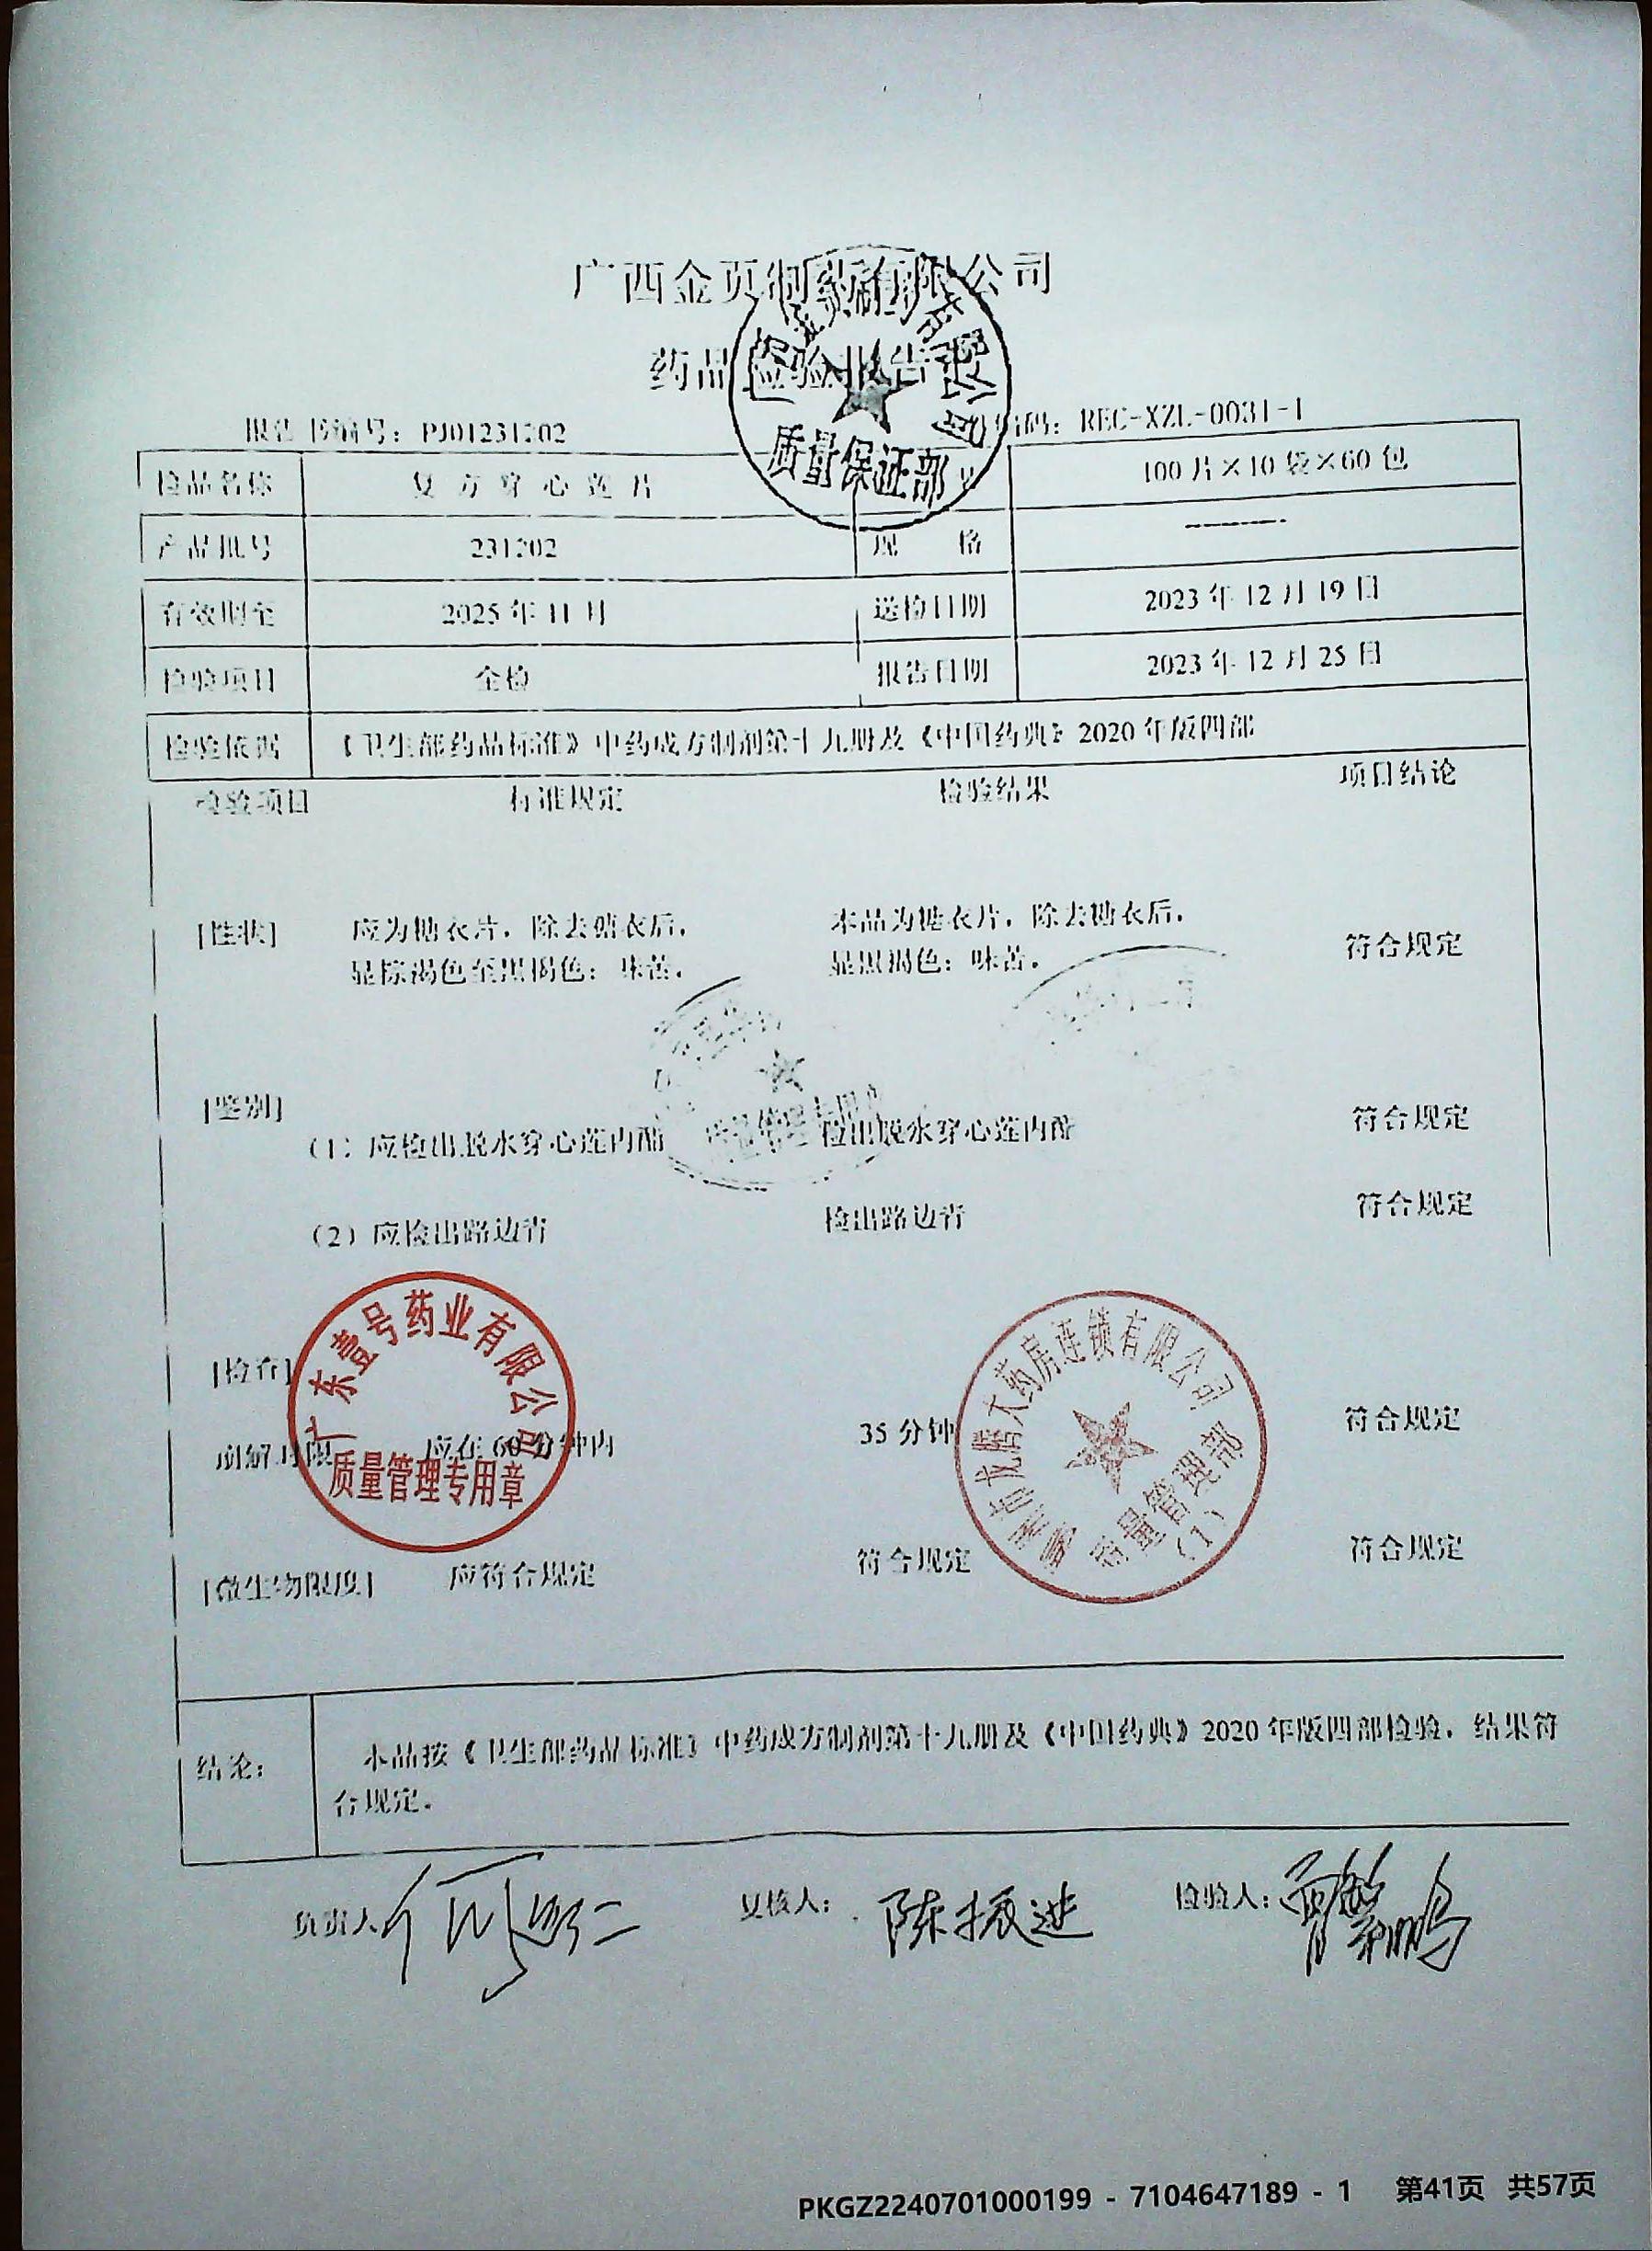 广西金页制药有限公司
药品检验报告
报告书编号：PJ01231202
编码：REC-XZL-0031-1
质量保证部
检品名称 复方穿心莲片 100片×10袋×60包
产品批号 231202 规 格 --------
有效期至 2025年11月 送检日期 2023年12月19日
检验项目 全检 报告日期 2023年12月25日
检验依据 《卫生部药品标准》中药成方制剂第十九册及《中国药典》2020年版四部
检验项目 标准规定 检验结果 项目结论
[性状] 应为糖衣片，除去糖衣后， 本品为糖衣片，除去糖衣后，
显棕褐色至黑褐色；味苦。 显黑褐色；味苦。 符合规定
[鉴别]
（1）应检出脱水穿心莲内酯 检出脱水穿心莲内酯 符合规定
（2）应检出路边青 检出路边青 符合规定
[检查]
崩解时限 应在60分钟内 35分钟 符合规定
广东壹号药业有限公司
质量管理专用章
大药房连锁有限公司
质量管理部
（1）
[微生物限度] 应符合规定 符合规定 符合规定
结论： 本品按《卫生部药品标准》中药成方制剂第十九册及《中国药典》2020年版四部检验，结果符
合规定。
负责人 复核人： 陈振进 检验人：
PKGZ2240701000199 - 7104647189 - 1 第41页 共57页